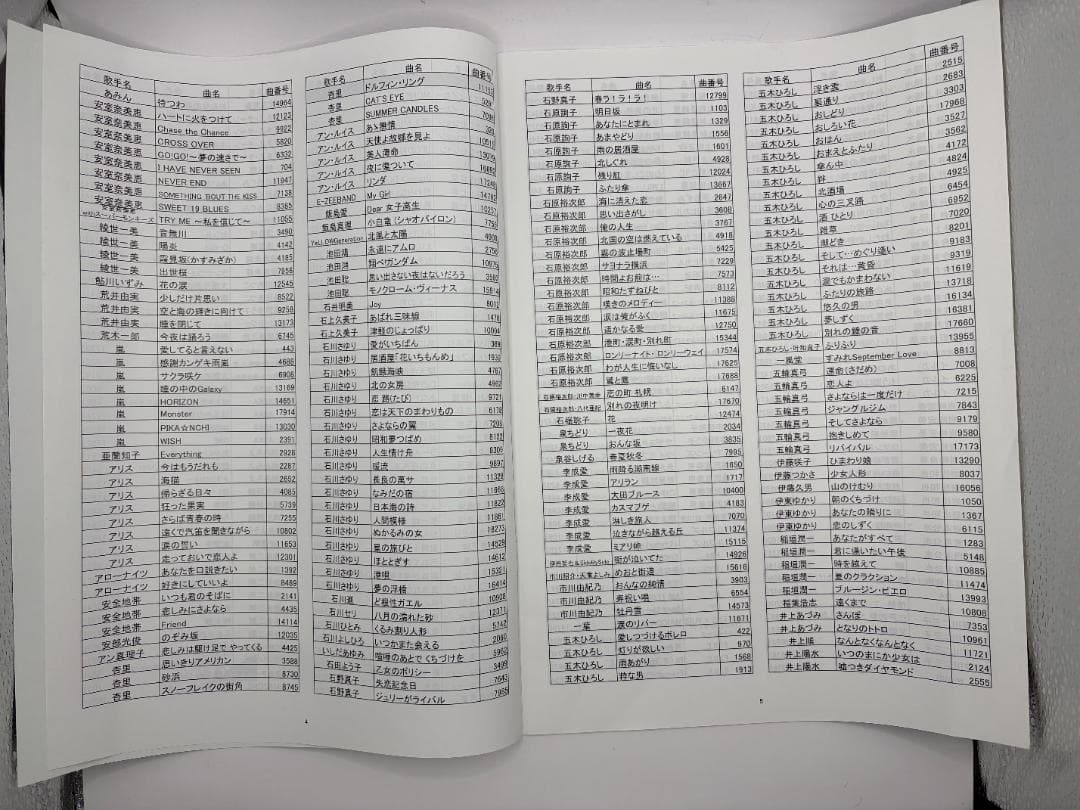 歌手名 曲名 曲番号
あみん 待つわ 14964
安室奈美恵 ハートに火をつけて 12123
安室奈美恵 Chase the Chance 9922
安室奈美恵 CROSS OVER 5820
安室奈美恵 GO!GO!～夢の速さで～ 6332
安室奈美恵 I HAVE NEVER SEEN 704
安室奈美恵 NEVER END 11947
安室奈美恵 SOMETHING 'BOUT THE KISS 7138
安室奈美恵 SWEET 19 BLUES 8365
TRY ME ～私を信じて～ 11055
綾世一美 音無川 3490
綾世一美 陽炎 4142
綾世一美 霞見坂(かすみざか) 4185
綾世一美 出世桜 7856
鮎川いずみ 花の涙 12545
荒井由実 少しだけ片思い 8522
荒井由実 空と海の輝きに向けて 9258
荒井由実 瞳を閉じて 13173
荒木一郎 今夜は踊ろう 6745
嵐 愛してると言えない 443
嵐 感謝カンゲキ雨嵐 4686
嵐 サクラ咲ケ 6906
嵐 瞳の中のGalaxy 13169
嵐 HORIZON 14651
嵐 Monster 17914
嵐 PIKA☆NCHI 13030
嵐 WISH 2391
亜蘭知子 Everything 2928
アリス 今はもうだれも 2287
アリス 海猫 2652
アリス 帰らざる日々 4085
アリス 狂った果実 5739
アリス さらば青春の時 7255
アリス 遠くで汽笛を聞きながら 10802
アリス 涙の誓い 11653
アリス 走っておいで恋人よ 12301
アローナイツ あなたを口説きたい 1392
アローナイツ 好きにしていいよ 8489
安全地帯 いつも君のそばに 2141
安全地帯 悲しみにさよなら 4435
安全地帯 Friend 14114
安部光俊 のぞみ坂 12035
アン真理子 悲しみは駆け足で やってくる 4425
杏里 思いきりアメリカン 3588
杏里 砂浜 8730
杏里 スノーフレイクの街角 8745
4
歌手名 曲名 曲番号
杏里 ドルフィン・リング
杏里 CAT'S EYE
杏里 SUMMER CANDLES
アン・ルイス あゝ無情
アン・ルイス 天使よ故郷を見よ
アン・ルイス 美人薄命
アン・ルイス 夜に傷ついて
アン・ルイス リンダ
E-ZEEBAND My Girl
飯島愛 Dear 女子高生
飯島真理 小白竜(シャオパイロン)
YeLLOWGeneration 北風と太陽
池田靖 永遠にアムロ
池田鴻 翔べガンダム
池田聡 思い出さない夜はないだろう
池田聡 モノクローム・ヴィーナス
石井明美 Joy
石上久美子 あばれ三味線
石上久美子 津軽のじょっぱり
石川さゆり 愛がいちばん
石川さゆり 居酒屋「花いちもんめ」
石川さゆり 飢餓海峡
石川さゆり 北の女房
石川さゆり 座 旅(たび)
石川さゆり 恋は天下のまわりもの
石川さゆり さよならの翼
石川さゆり 昭和夢つばめ
石川さゆり 人生情け舟
石川さゆり 暖流
石川さゆり 長良の萬サ
石川さゆり なみだの宿
石川さゆり 日本海の詩
石川さゆり 人間模様
石川さゆり ぬかるみの女
石川さゆり 星の旅びと
石川さゆり ほととぎす
石川さゆり 港唄
石川さゆり 夢の浮橋
石川進 ど根性ガエル
石川セリ 八月の濡れた砂
石川ひとみ くるみ割り人形
石川よしひろ いつかまた会える
いしだあゆみ 喧嘩のあとでくちづけを
石田よう子 乙女のポリシー
石野真子 失恋記念日
石野真子 ジュリーがライバル
歌手名 曲名 曲番号
石野真子 春ラ!ラ!ラ! 12799
石原詢子 明日坂 1103
石原詢子 あなたにとまれ 1329
石原詢子 あまやどり 1556
石原詢子 雨の居酒屋 1601
石原詢子 北しぐれ 4928
石原詢子 残り紅 12024
石原詢子 ふたり傘 13667
石原裕次郎 海に消えた恋 2647
石原裕次郎 思い出さがし 3608
石原裕次郎 俺の人生 3767
石原裕次郎 北国の空は燃えている 4918
石原裕次郎 霧の波止場町 5425
石原裕次郎 サヨナラ横浜 7229
石原裕次郎 時間よお前は… 7573
石原裕次郎 昭和たずねびと 8112
石原裕次郎 嘆きのメロディー 11388
石原裕次郎 涙は俺がふく 11675
石原裕次郎 遥かなる愛 12750
石原裕次郎 港町・涙町・別れ町 15344
石原裕次郎 ロンリーナイト・ロンリーウェイ 17574
石原裕次郎 わが人生に悔いなし 17625
石原裕次郎 鷲と鷹 17688
恋の町 札幌 6147
石原裕次郎・八代亜紀 別れの夜明け 17670
石嶺聡子 花 12474
泉ちどり 一夜花 2034
泉ちどり おんな坂 3835
泉谷しげる 春夏秋冬 7995
李成愛 雨降る湖南線 1650
李成愛 アリラン 1717
李成愛 大田ブルース 10400
李成愛 カスマプゲ 4183
李成愛 淋しき旅人 7070
李成愛 泣きながら越える丘 11374
李成愛 ミアリ峠 15115
街が泣いてた 14926
市川昭介・大東よしみ めおと街道 15618
市川由紀乃 おんなの純情 3903
市川由紀乃 寿祝い唄 6554
市川由紀乃 牡丹雪 14573
一星 涙のリバー 11671
五木ひろし 愛しつづけるボレロ 422
五木ひろし 灯りが欲しい 670
五木ひろし 雨あがり 1568
五木ひろし 粋な男 1913
5
歌手名 曲名 曲番号
五木ひろし 浮き雲 2515
五木ひろし 裏通り 2683
五木ひろし おしどり 3303
五木ひろし おしろい花 17968
五木ひろし おはん 3527
五木ひろし おまえとふたり 3562
五木ひろし 傘ん中 4172
五木ひろし 絆 4824
五木ひろし 北酒場 4925
五木ひろし 心の三叉路 6454
五木ひろし 酒 ひとり 6952
五木ひろし 雑草 7020
五木ひろし 潮どき 8201
五木ひろし そして…めぐり逢い 9183
五木ひろし それは…黄昏 9319
五木ひろし 泥でもかまわない 11619
五木ひろし ふたりの旅路 13718
五木ひろし 悠久の男 16134
五木ひろし 夢しずく 16381
五木ひろし 別れの鐘の音 17660
ふりふり 13955
一風堂 すみれSeptember Love 8813
五輪真弓 運命(さだめ) 7008
五輪真弓 恋人よ 6225
五輪真弓 さよならは一度だけ 7215
五輪真弓 ジャングルジム 7843
五輪真弓 そしてさよなら 9179
五輪真弓 抱きしめて 9580
五輪真弓 リバイバル 17173
伊藤咲子 ひまわり娘 13290
伊藤つかさ 少女人形 8037
伊藤久男 山のけむり 16056
伊東ゆかり 朝のくちづけ 1050
伊東ゆかり あなたの隣りに 1367
伊東ゆかり 恋のしずく 6115
稲垣潤一 あなたがすべて 1283
稲垣潤一 君に逢いたい午後 5148
稲垣潤一 時を越えて 10885
稲垣潤一 夏のクラクション 11474
稲垣潤一 ブルージン・ピエロ 13993
稲葉浩志 遠くまで 10808
井上あづみ さんぽ 7353
井上あづみ となりのトトロ 10961
井上順 なんとなくなんとなく 11721
井上陽水 いつのまにか少女は 2124
井上陽水 嘘つきダイヤモンド 2555